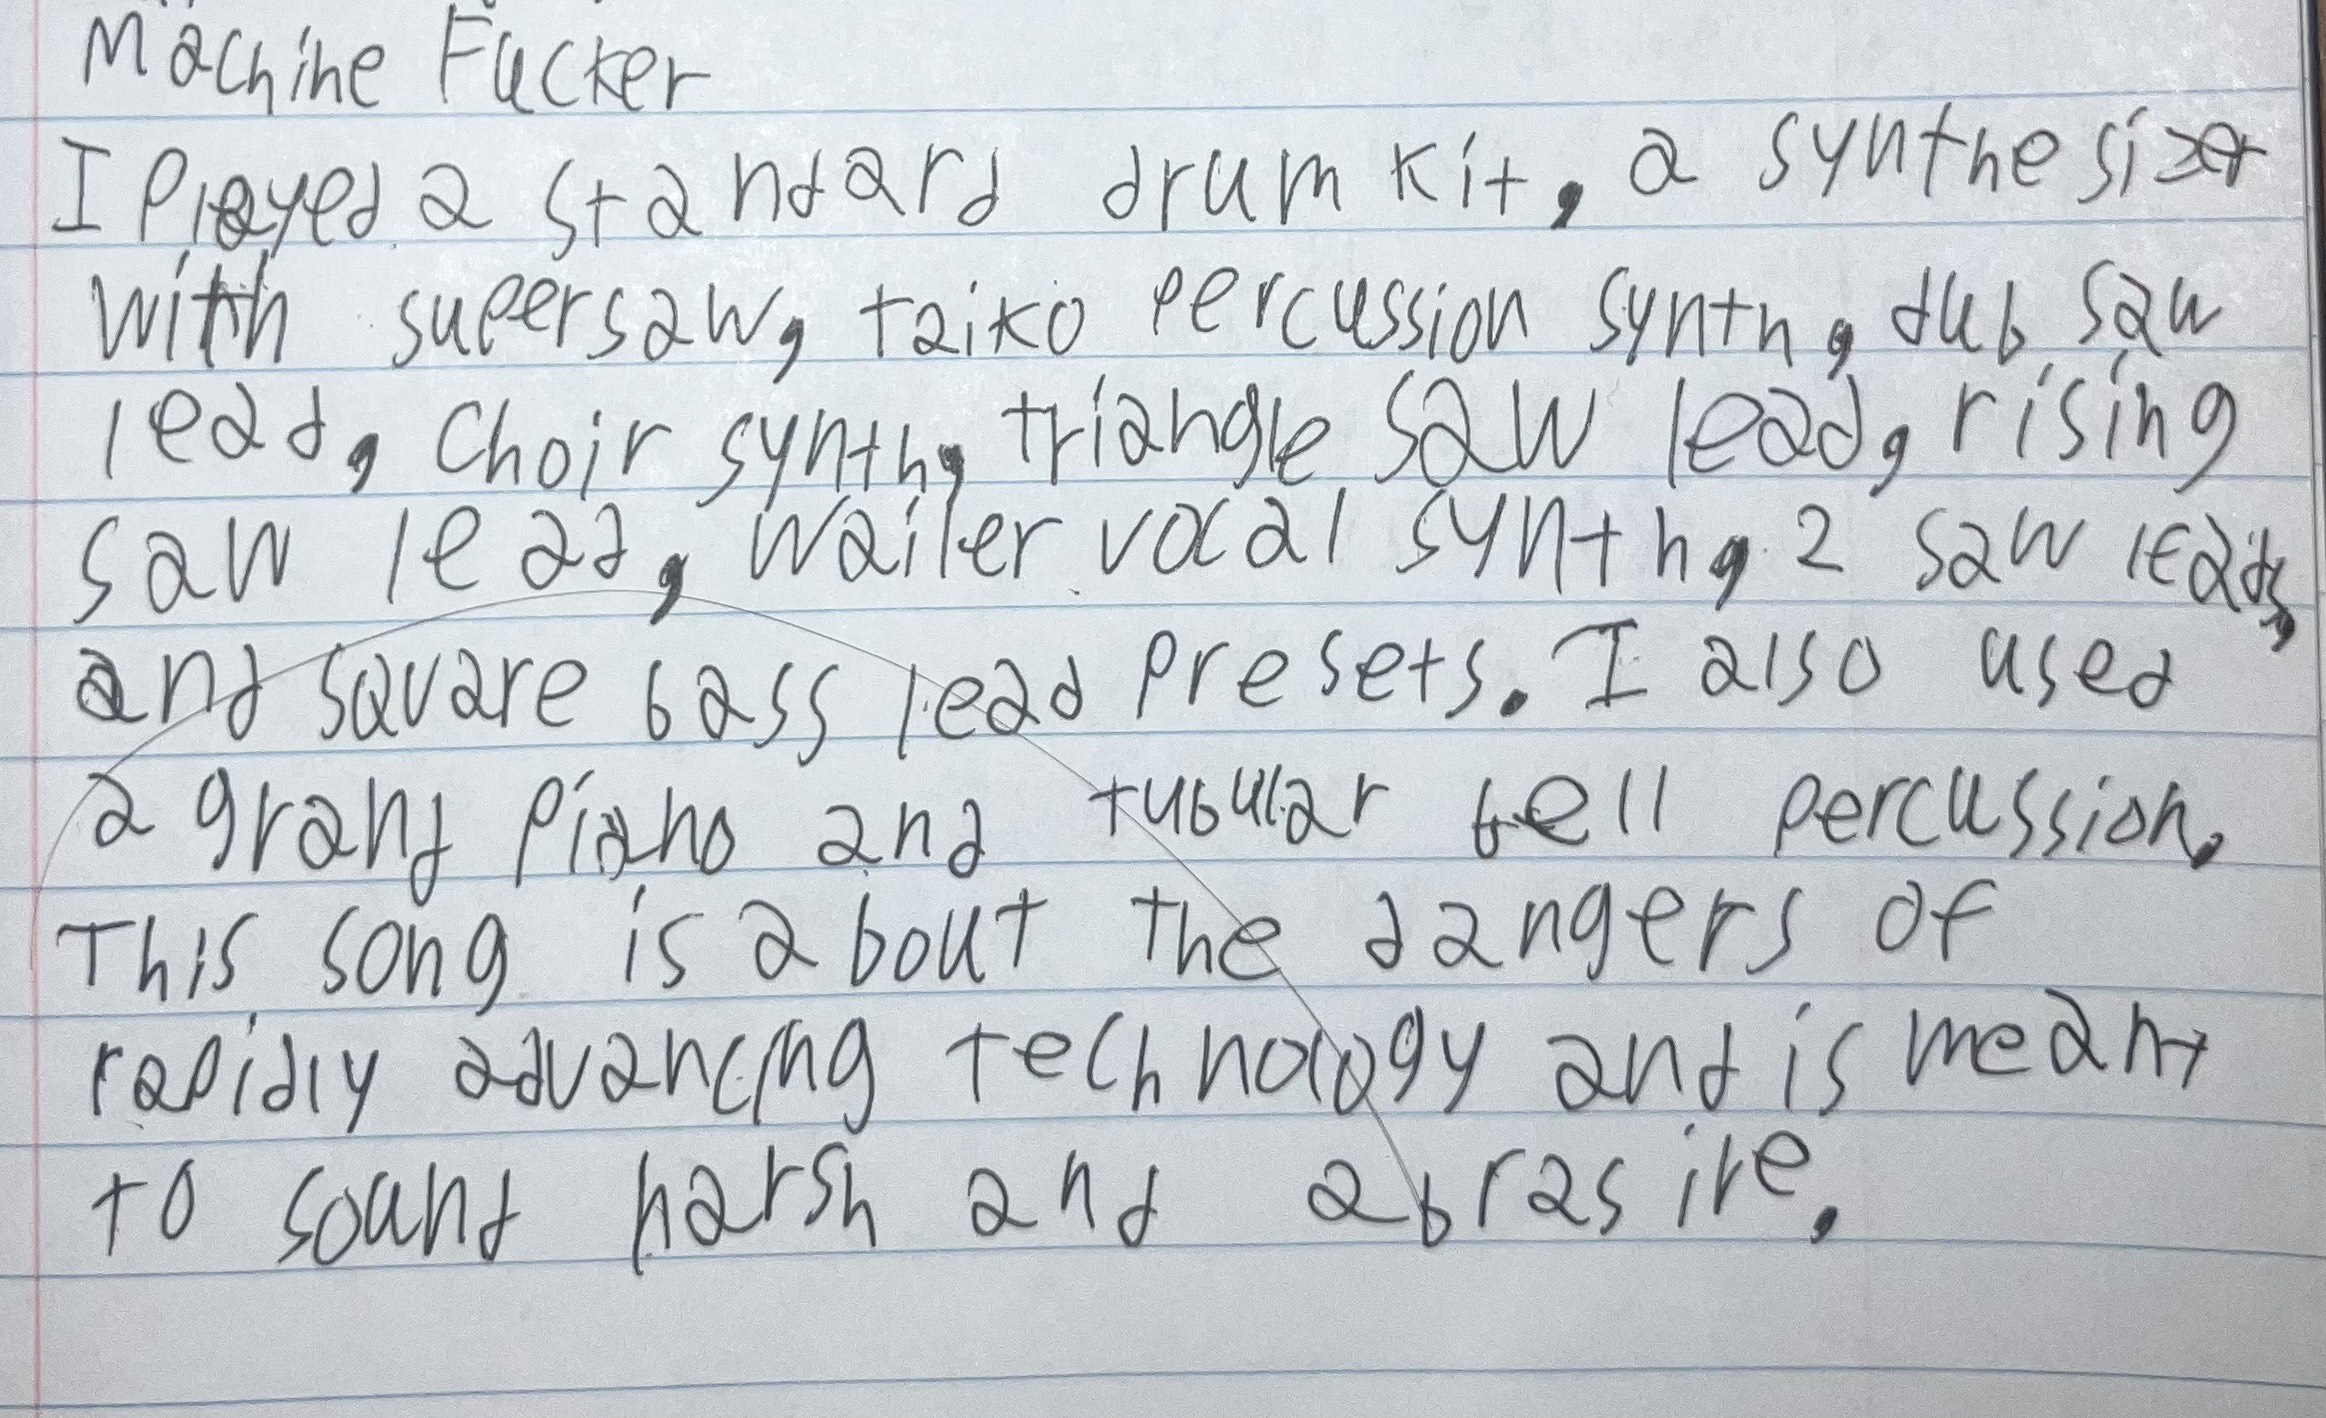 Machine Fucker
I Played a standard drum kit, a synthesizer
with supersaw, taiko percussion synth, dub saw
lead, choir synth, triangle saw lead, rising
saw lead, wailer vocal synth, 2 saw leads,
and square bass lead presets. I also used
a grand piano and tubular bell percussion.
This song is about the dangers of
rapidly advancing technology and is meant
to sound harsh and abrasive.